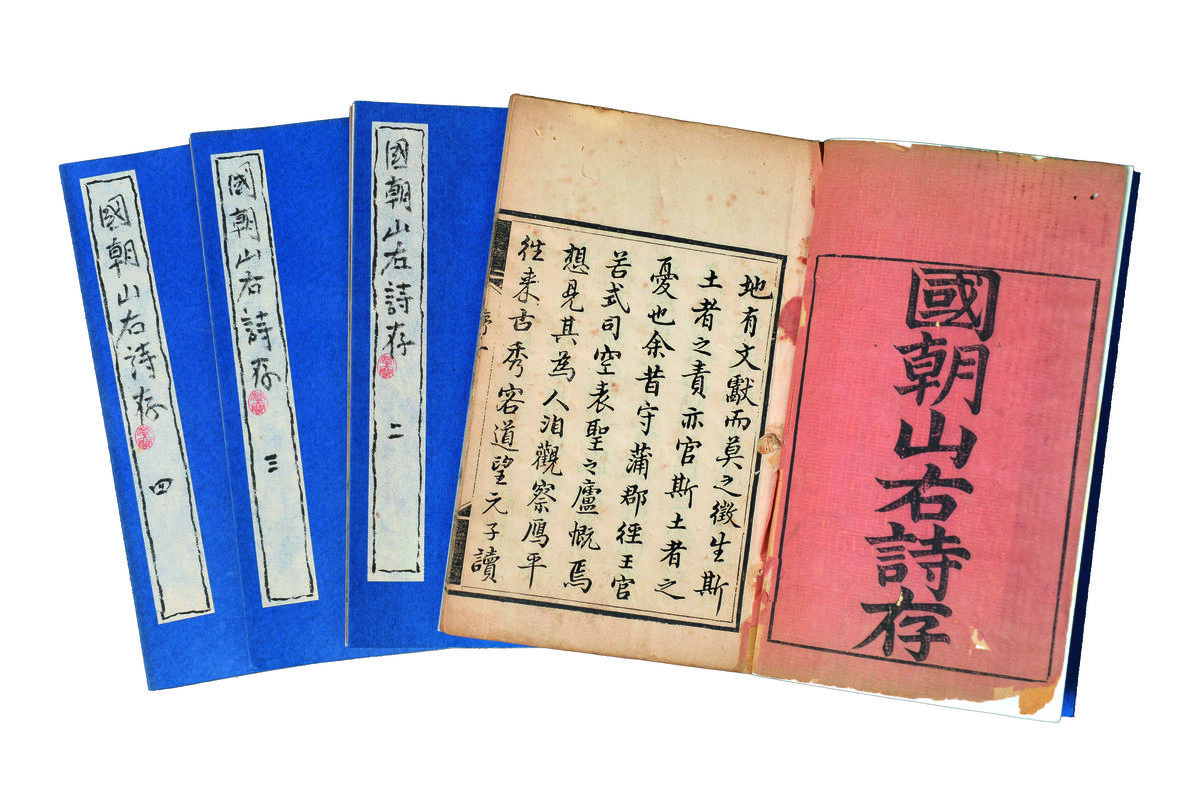 國朝山右詩存
地有文獻而莫之徵生斯
土者之責亦官斯土者之
憂也余昔守蒲郡徑王官
谷式司空表聖之廬慨焉
想見其為人洎觀察鴈平
往来古秀容道望元子讀
國朝山右詩存 二
國朝山右詩存 三
國朝山右詩存 四